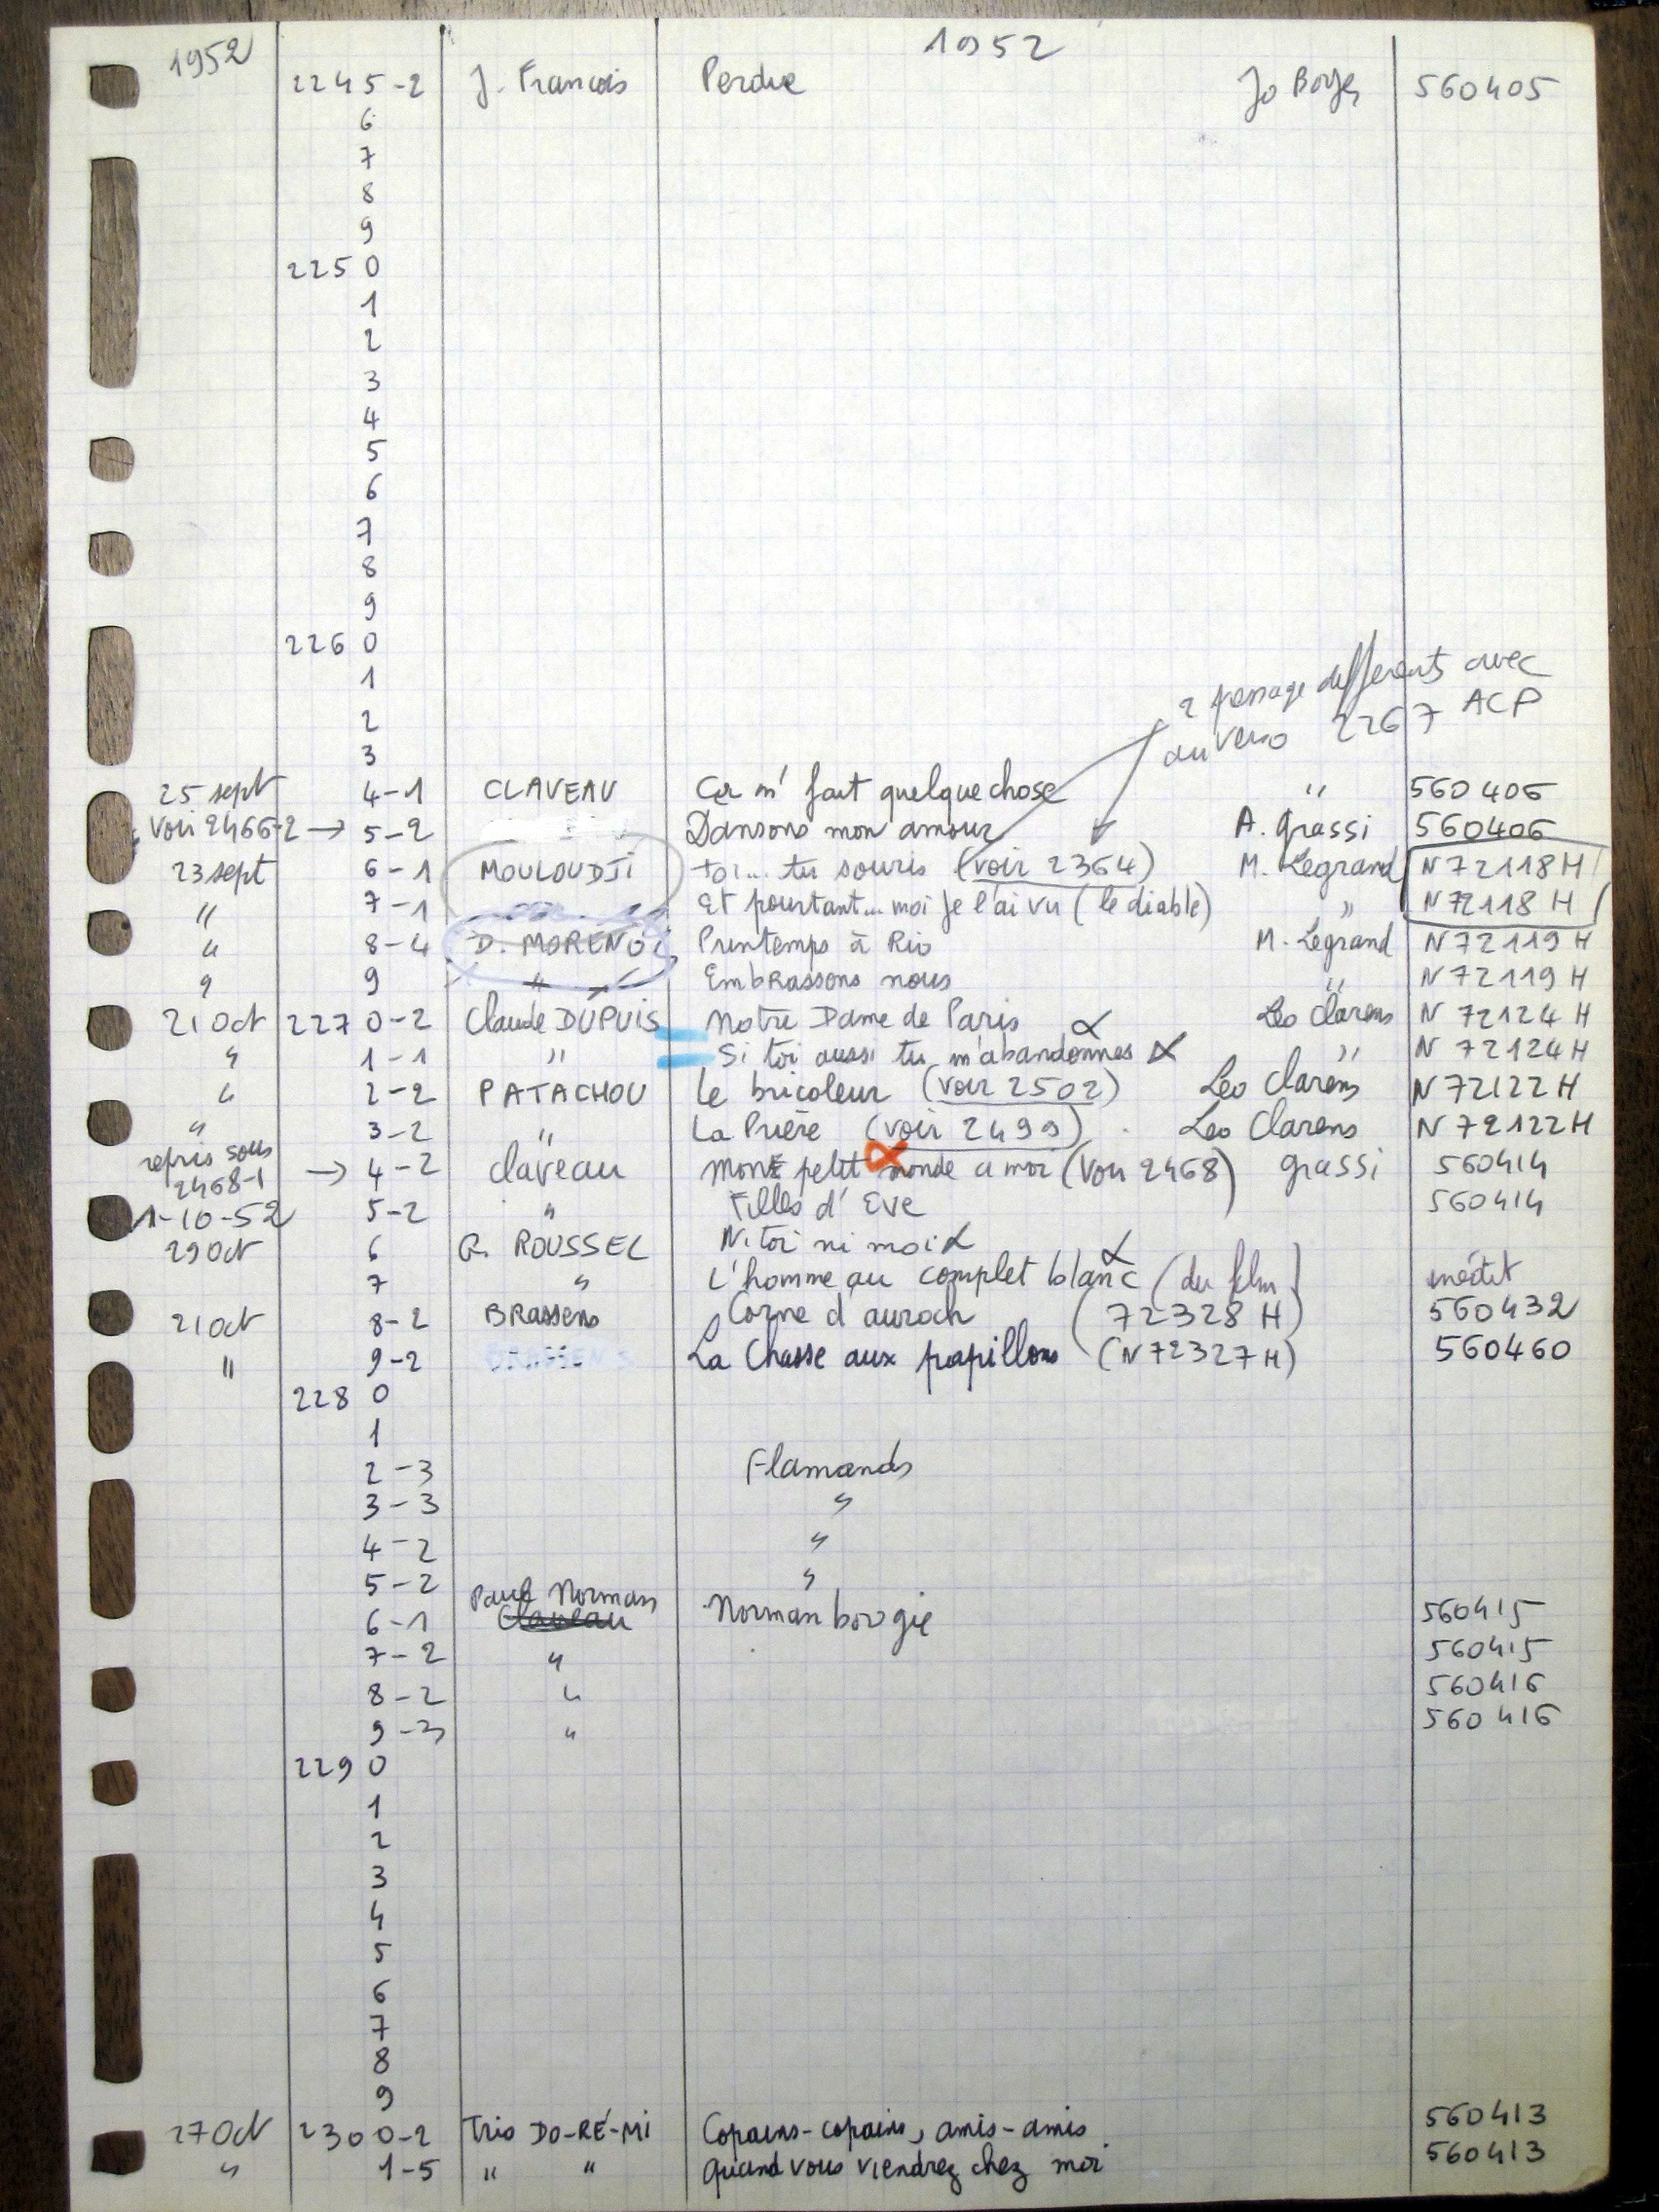 1952
1952
2245-2 J. Francois Perdue Jo Boyer 560405
6
7
8
9
2250
1
2
3
4
5
6
7
8
9
2260
1
2
3
2 passage differents avec
au verso 2267 ACP
25 sept 4-1 CLAVEAU Ça m' fait quelque chose " 560406
voir 2466-2 → 5-2 Dansons mon amour A. Grassi 560406
23 sept 6-1 MOULOUDJI toi... tu souris (voir 2364) M. Legrand N 72118 H
" 7-1 Et pourtant... moi je l'ai vu (le diable) " N 72118 H
" 8-4 D. MORENO Printemps à Rio M. Legrand N 72119 H
9 9 " " Embrassons nous " N 72119 H
21 Oct 2270-2 Claude DUPUIS Notre Dame de Paris α Leo Clarens N 72124 H
" 1-1 " Si toi aussi tu m'abandonnes α " N 72124 H
" 2-2 PATACHOU Le bricoleur (voir 2502) Leo Clarens N 72122 H
" 3-2 " La Prière (voir 2499) Leo Clarens N 72122 H
repris sous
2468-1
→ 4-2 Claveau Mon petit monde a moi (voir 2468) grassi 560414
1-10-52 5-2 " Filles d' Eve 560414
29 Oct 6 R. ROUSSEL Ni toi ni moi α
7 " L'homme au complet blanc α (du film) inédit
21 Oct 8-2 BRASSENS Corne d auroch (72328 H) 560432
" 9-2 BRASSENS La Chasse aux papillons (N 72327 H) 560460
2280
1
2-3 Flamands
3-3 "
4-2 "
5-2 "
Paul Norman
6-1 Claveau Norman boogie 560415
7-2 " 560415
8-2 " 560416
9-3 " 560416
2290
1
2
3
4
5
6
7
8
9
27 Oct 2300-2 Trio DO-RÉ-MI Copains-copains, amis-amis 560413
" 1-5 " " Quand vous viendrez chez moi 560413